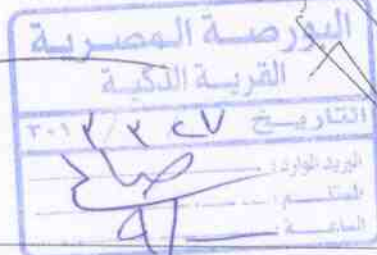 البورصـة المـصـريـة
القرية الذكية
التاريـخ ٢٧ / ٣ / ٢٠١
البريد الوارد :
المستلـم :
الساعـة :